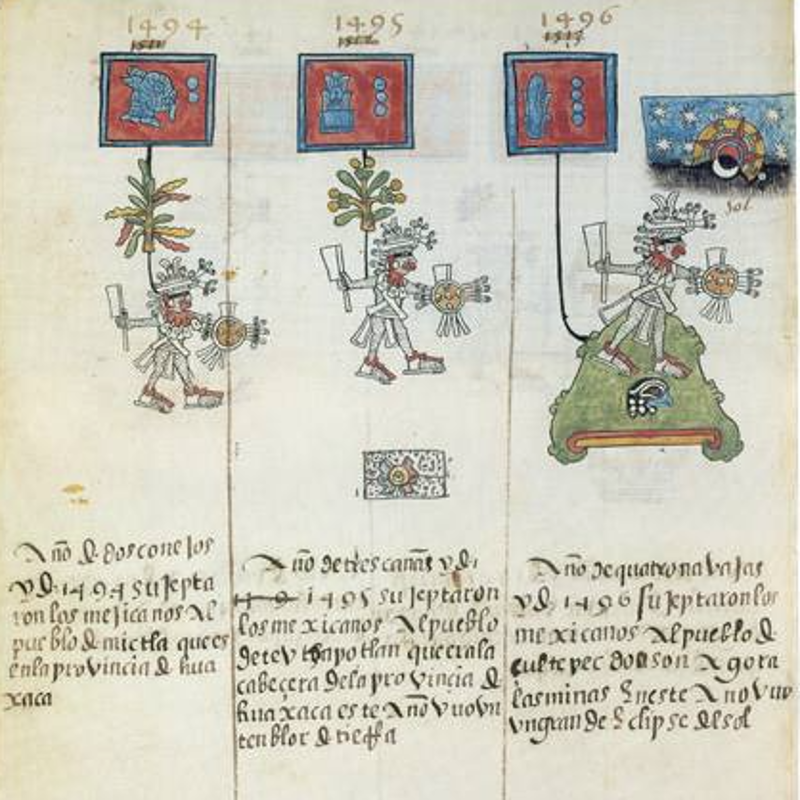 1494
1495
1496
sol
Año de dos conejos
y de 1494 sujeta
ron los mejicanos al
pueblo de mictla que es
en la provincia de hua
xaca
Año de tres cañas y de
1495 sujeptaron
los mexicanos Al pueblo
de teutzapotlan que era la
cabeçera de la provincia de
huaxaca este Año vuo vn
tenblor de tierra
Año de quatro navajas
y de 1496 sujeptaron los
mexicanos Al pueblo de
donson Agora
las minas En este Año vuo
vn grande Eclipse del sol